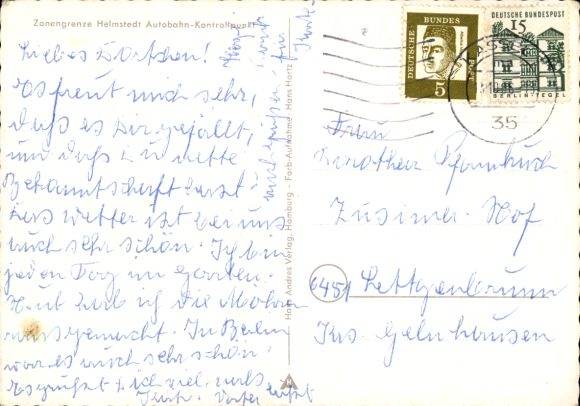 Zonengrenze Helmstedt Autobahn-Kontrollpunkt
Liebes Dortchen!
Es freut mich sehr,
daß es Dir gefällt,
und daß Du nette
Bekanntschaft hast
Das Wetter ist bei uns
auch sehr schön. Ich bin
jeden Tag im Garten.
Heut hab ich die Möhren
ausgemacht. In Berlin
war es auch sehr schön.
Es grüßt Dich viel mals
Hans Andres Verlag, Hamburg - Farb-Aufnahme Hans Hartz
DEUTSCHE BUNDESPOST
5
DEUTSCHE BUNDESPOST
15
BERLIN-TEGEL
35
Frau
Dorothea Pfannkuch
Zusimer-Hof
6451 Lettgenbrunn
Krs. Gelnhausen